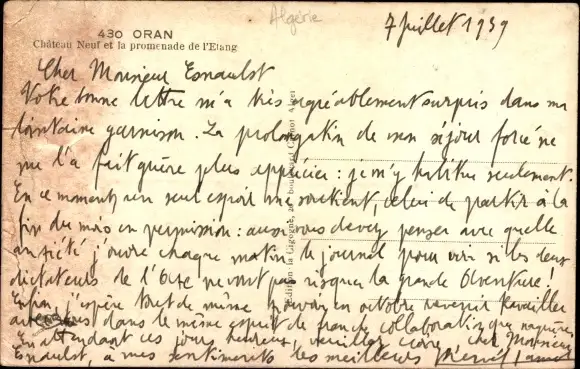 Algérie
7 Juillet 1939
430 ORAN
Château Neuf et la promenade de l'Etang
Cher Monsieur Esnault
Votre bonne lettre m'a très agréablement surpris dans ma
lointaine garnison. La prolongation de mon séjour forcé ne
me l'a fait guère plus apprécier : je m'y habitue seulement.
En ce moment, un seul espoir me soutient, celui de partir à la
fin du mois en permission : aussi vous devez penser avec quelle
anxiété j'ouvre chaque matin le journal pour voir si les deux
dictateurs de l'Axe ne vont pas risquer la grande Aventure !
Enfin, j'espère tout de même pouvoir en octobre revenir travailler
avec vous dans le même esprit de franche collaboration que naguère.
En attendant ces jours heureux, veuillez croire, cher Monsieur
Esnault, à mes sentiments les meilleurs
Edition la Cigogne, boulevard Carnot Alger